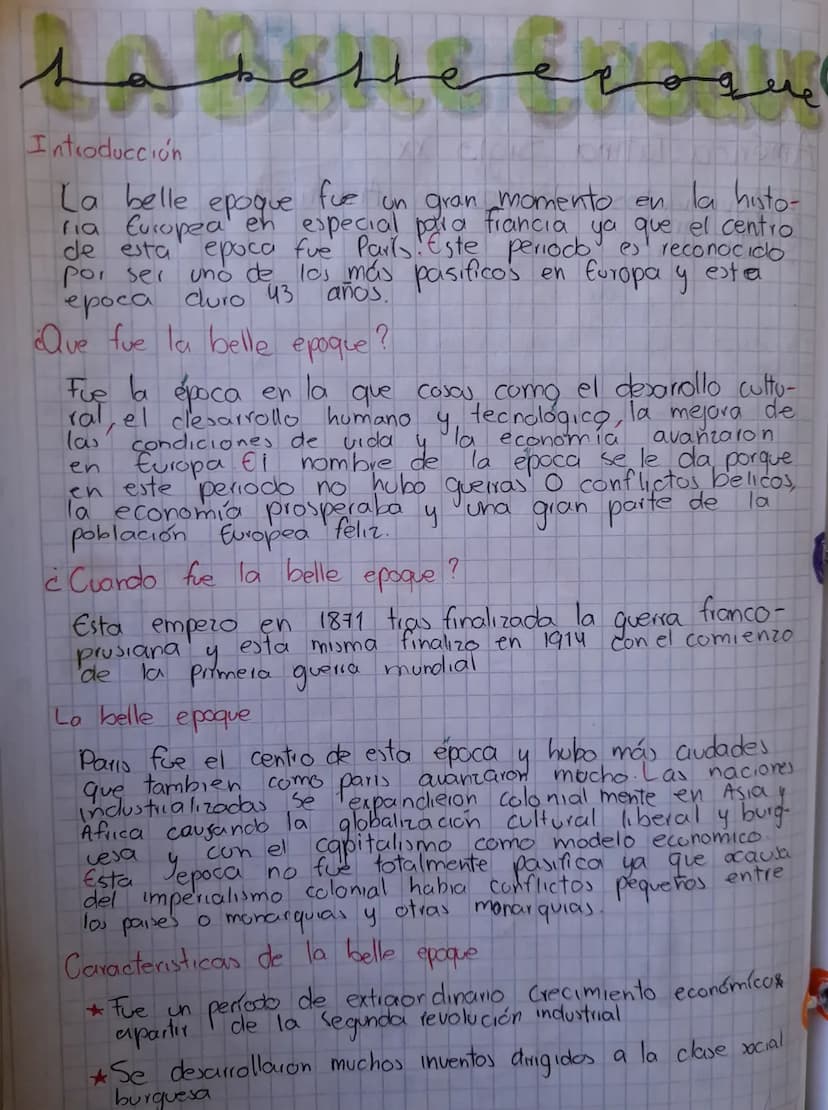 La Belle Epoque
La belle epoque
Introducción
La belle epoque fue un gran momento en la histo-
ria Europea en especial para francia ya que el centro
de esta epoca fue París. Este periodo es reconocido
por ser uno de los más pasificos en Europa y esta
epoca duro 43 años.
¿Que fue la belle epoque?
Fue la época en la que cosas como el desarollo cultu-
ral, el desarrollo humano y tecnológico, la mejora de
las condiciones de vida y la economía avanzaron
en Europa El nombre de la época se le da porque
en este periodo no hubo guerras o conflictos belicos,
la economía prosperaba y una gran parte de la
población Europea feliz.
¿Cuando fue la belle epoque?
Esta empezo en 1871 tras finalizada la guerra franco-
prusiana y esta misma finalizo en 1914 con el comienzo
de la primera guerra mundial
La belle epoque
Paris fue el centro de esta época y hubo más ciudades
que tambien como paris avanzaron mucho. Las naciones
industrializadas se expandieron colonial mente en Asia y
Africa causando la globalización cultural liberal y burg-
uesa y con el capitalismo como modelo economico.
Esta epoca no fue totalmente pasifica ya que acausa
del imperialismo colonial habia conflictos pequeños entre
los paises o monarquias y otras monarquias.
Caracteristicas de la belle epoque
★ Fue un período de extraordinario crecimiento económicos
apartir de la segunda revolución industrial
★ Se desarrollaron muchos inventos dirigidos a la clase social
burguesa